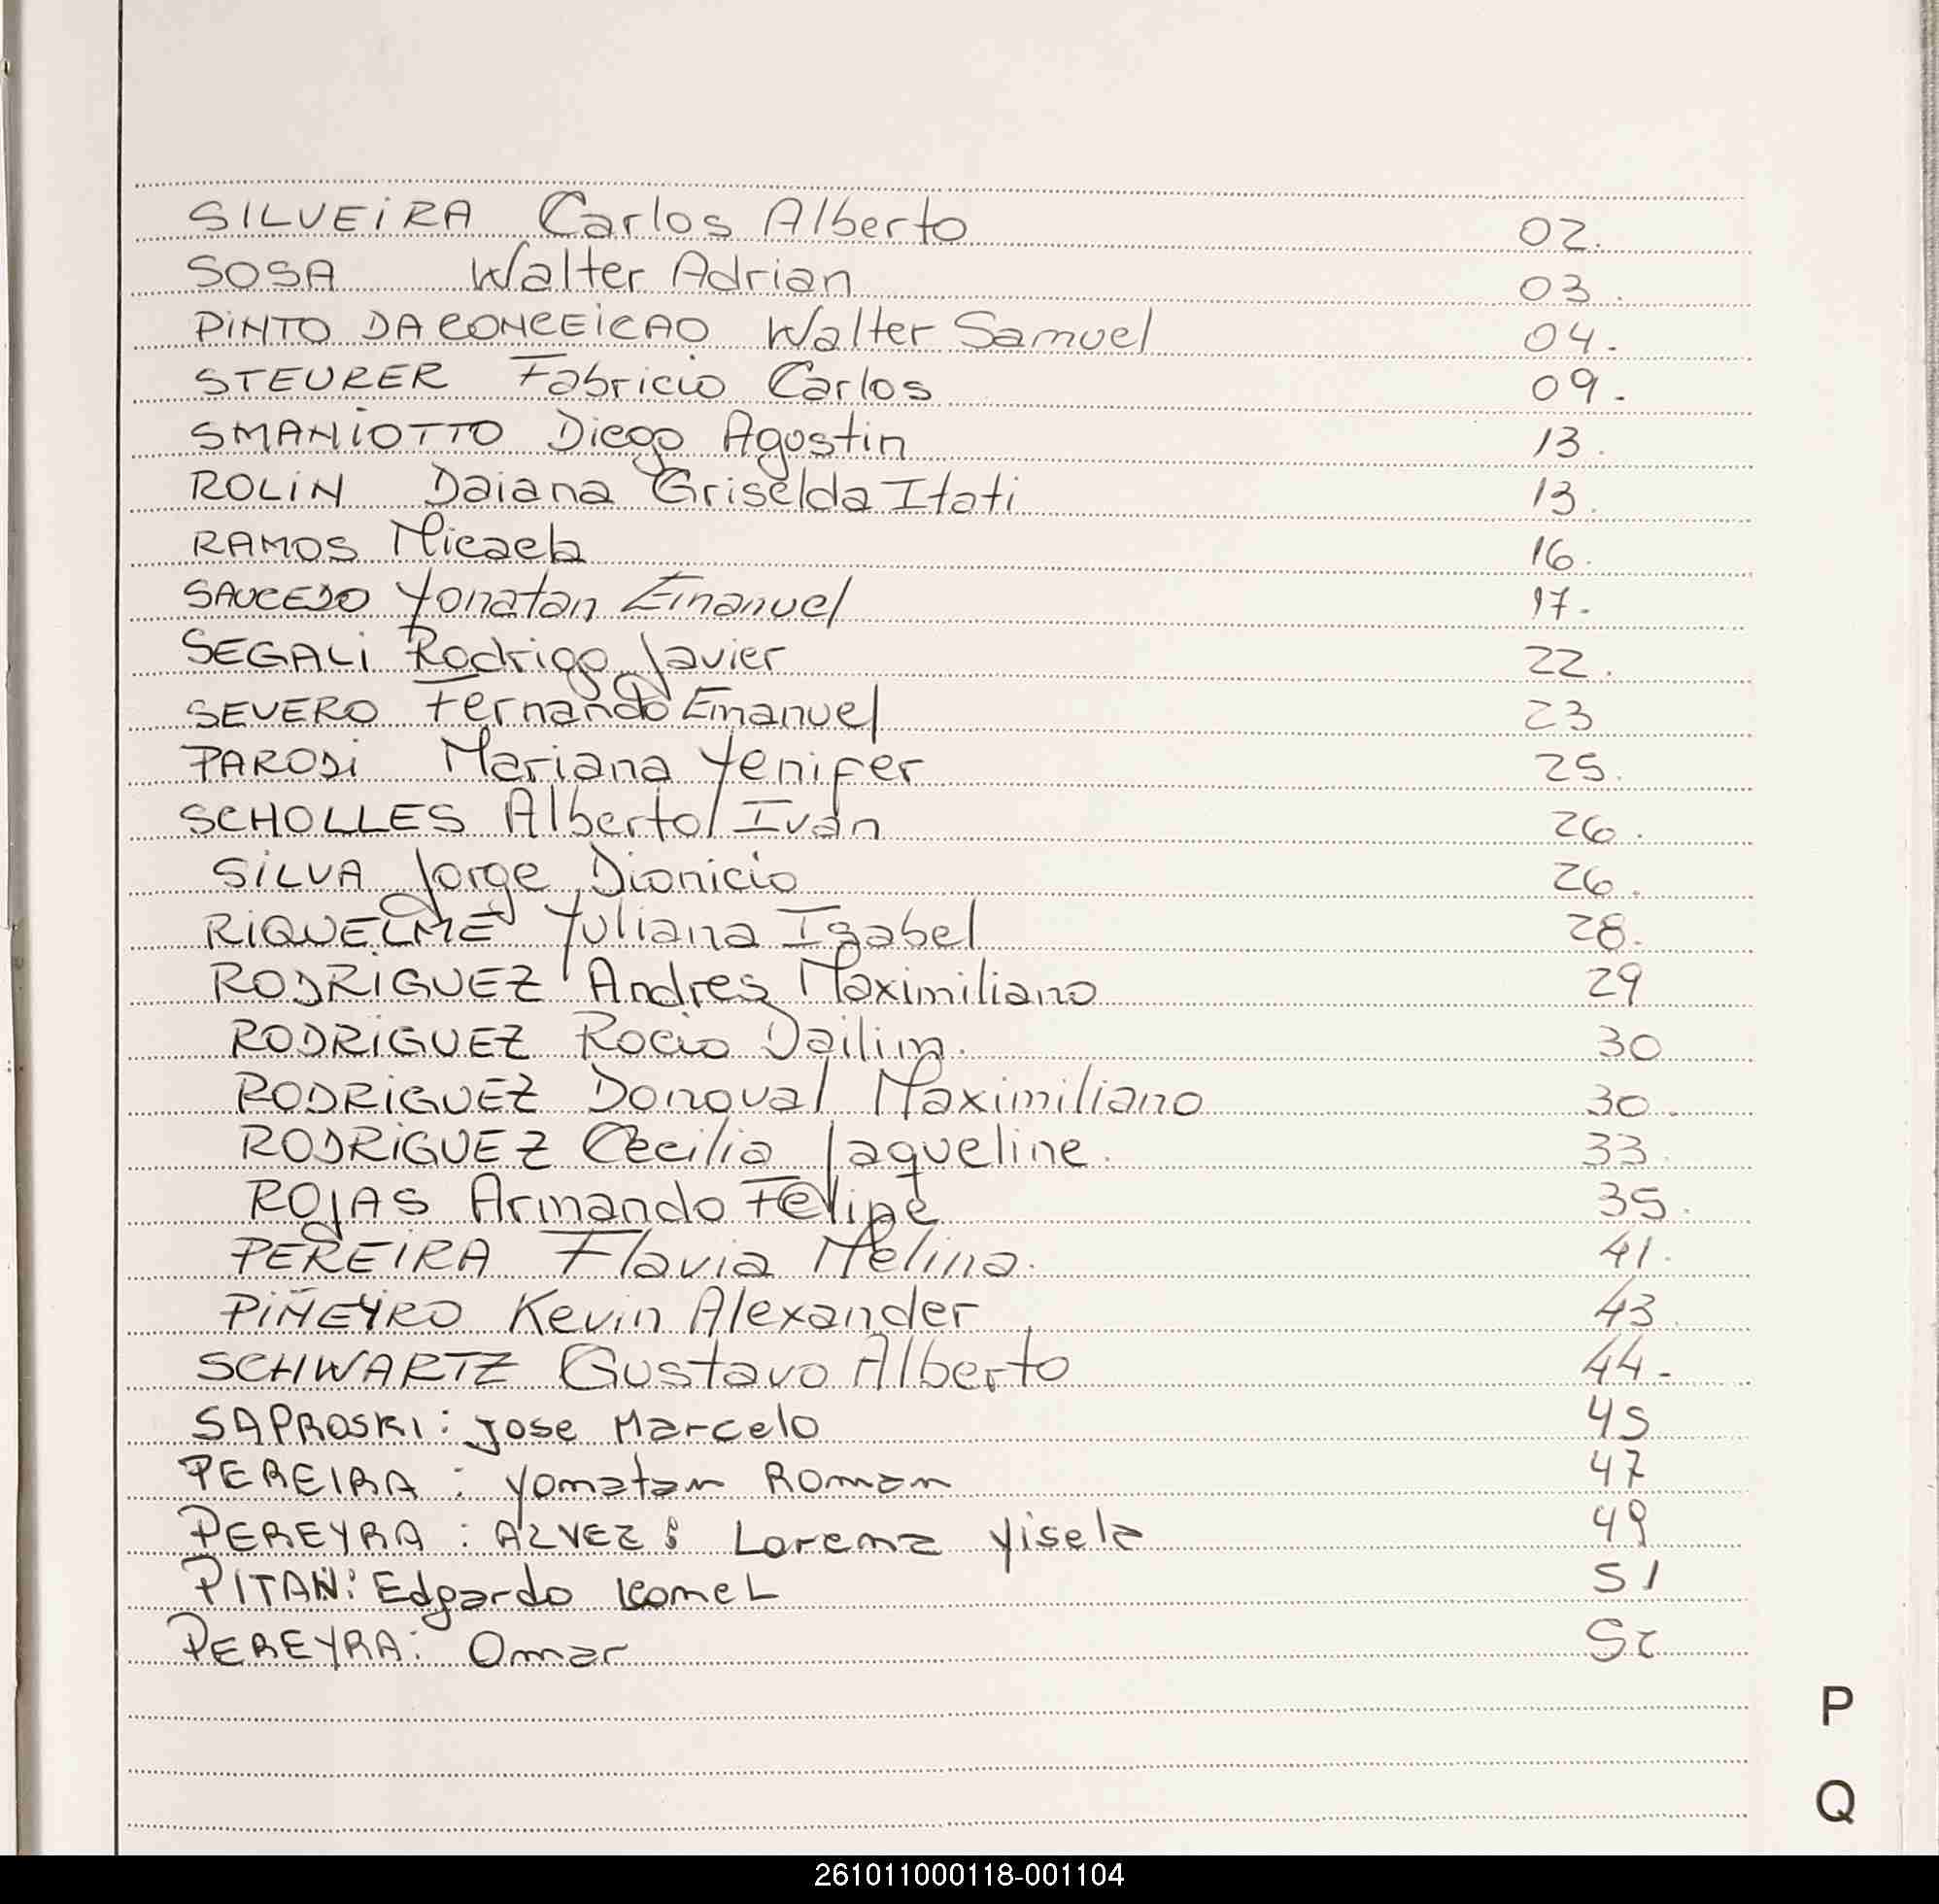 SILVEIRA Carlos Alberto 02.
SOSA Walter Adrian 03.
PINTO DA CONCEICAO Walter Samuel 04.
STEURER Fabricio Carlos 09.
SMANIOTTO Diego Agostin 13.
ROLIN Daiana Griselda Itati 13.
RAMOS Micaela 16.
SAUCEDO Yonatan Emanuel 17.
SEGALI Rodrigo Javier 22.
SEVERO Fernando Emanuel 23
PARODI Mariana Yenifer 25.
SCHOLLES Alberto Ivan 26.
SILVA Jorge Dionicio 26.
RIQUELME Yuliana Isabel 28.
RODRIGUEZ Andres Maximiliano 29
RODRIGUEZ Rocio Dailin. 30
RODRIGUEZ Donoval Maximiliano 30.
RODRIGUEZ Cecilia Jaqueline. 33.
ROJAS Armando Felipe 35.
PEREIRA Flavia Melina. 41.
PIÑEYRO Kevin Alexander 43.
SCHWARTZ Gustavo Alberto 44.
SAPROSKI: Jose Marcelo 45
PEREIRA: Yonatan Roman 47
PEREYRA: ALVEZ: Lorena Yisela 49
PITAN: Edgardo 51
PEREYRA: Omar 52
P
Q
261011000118-001104